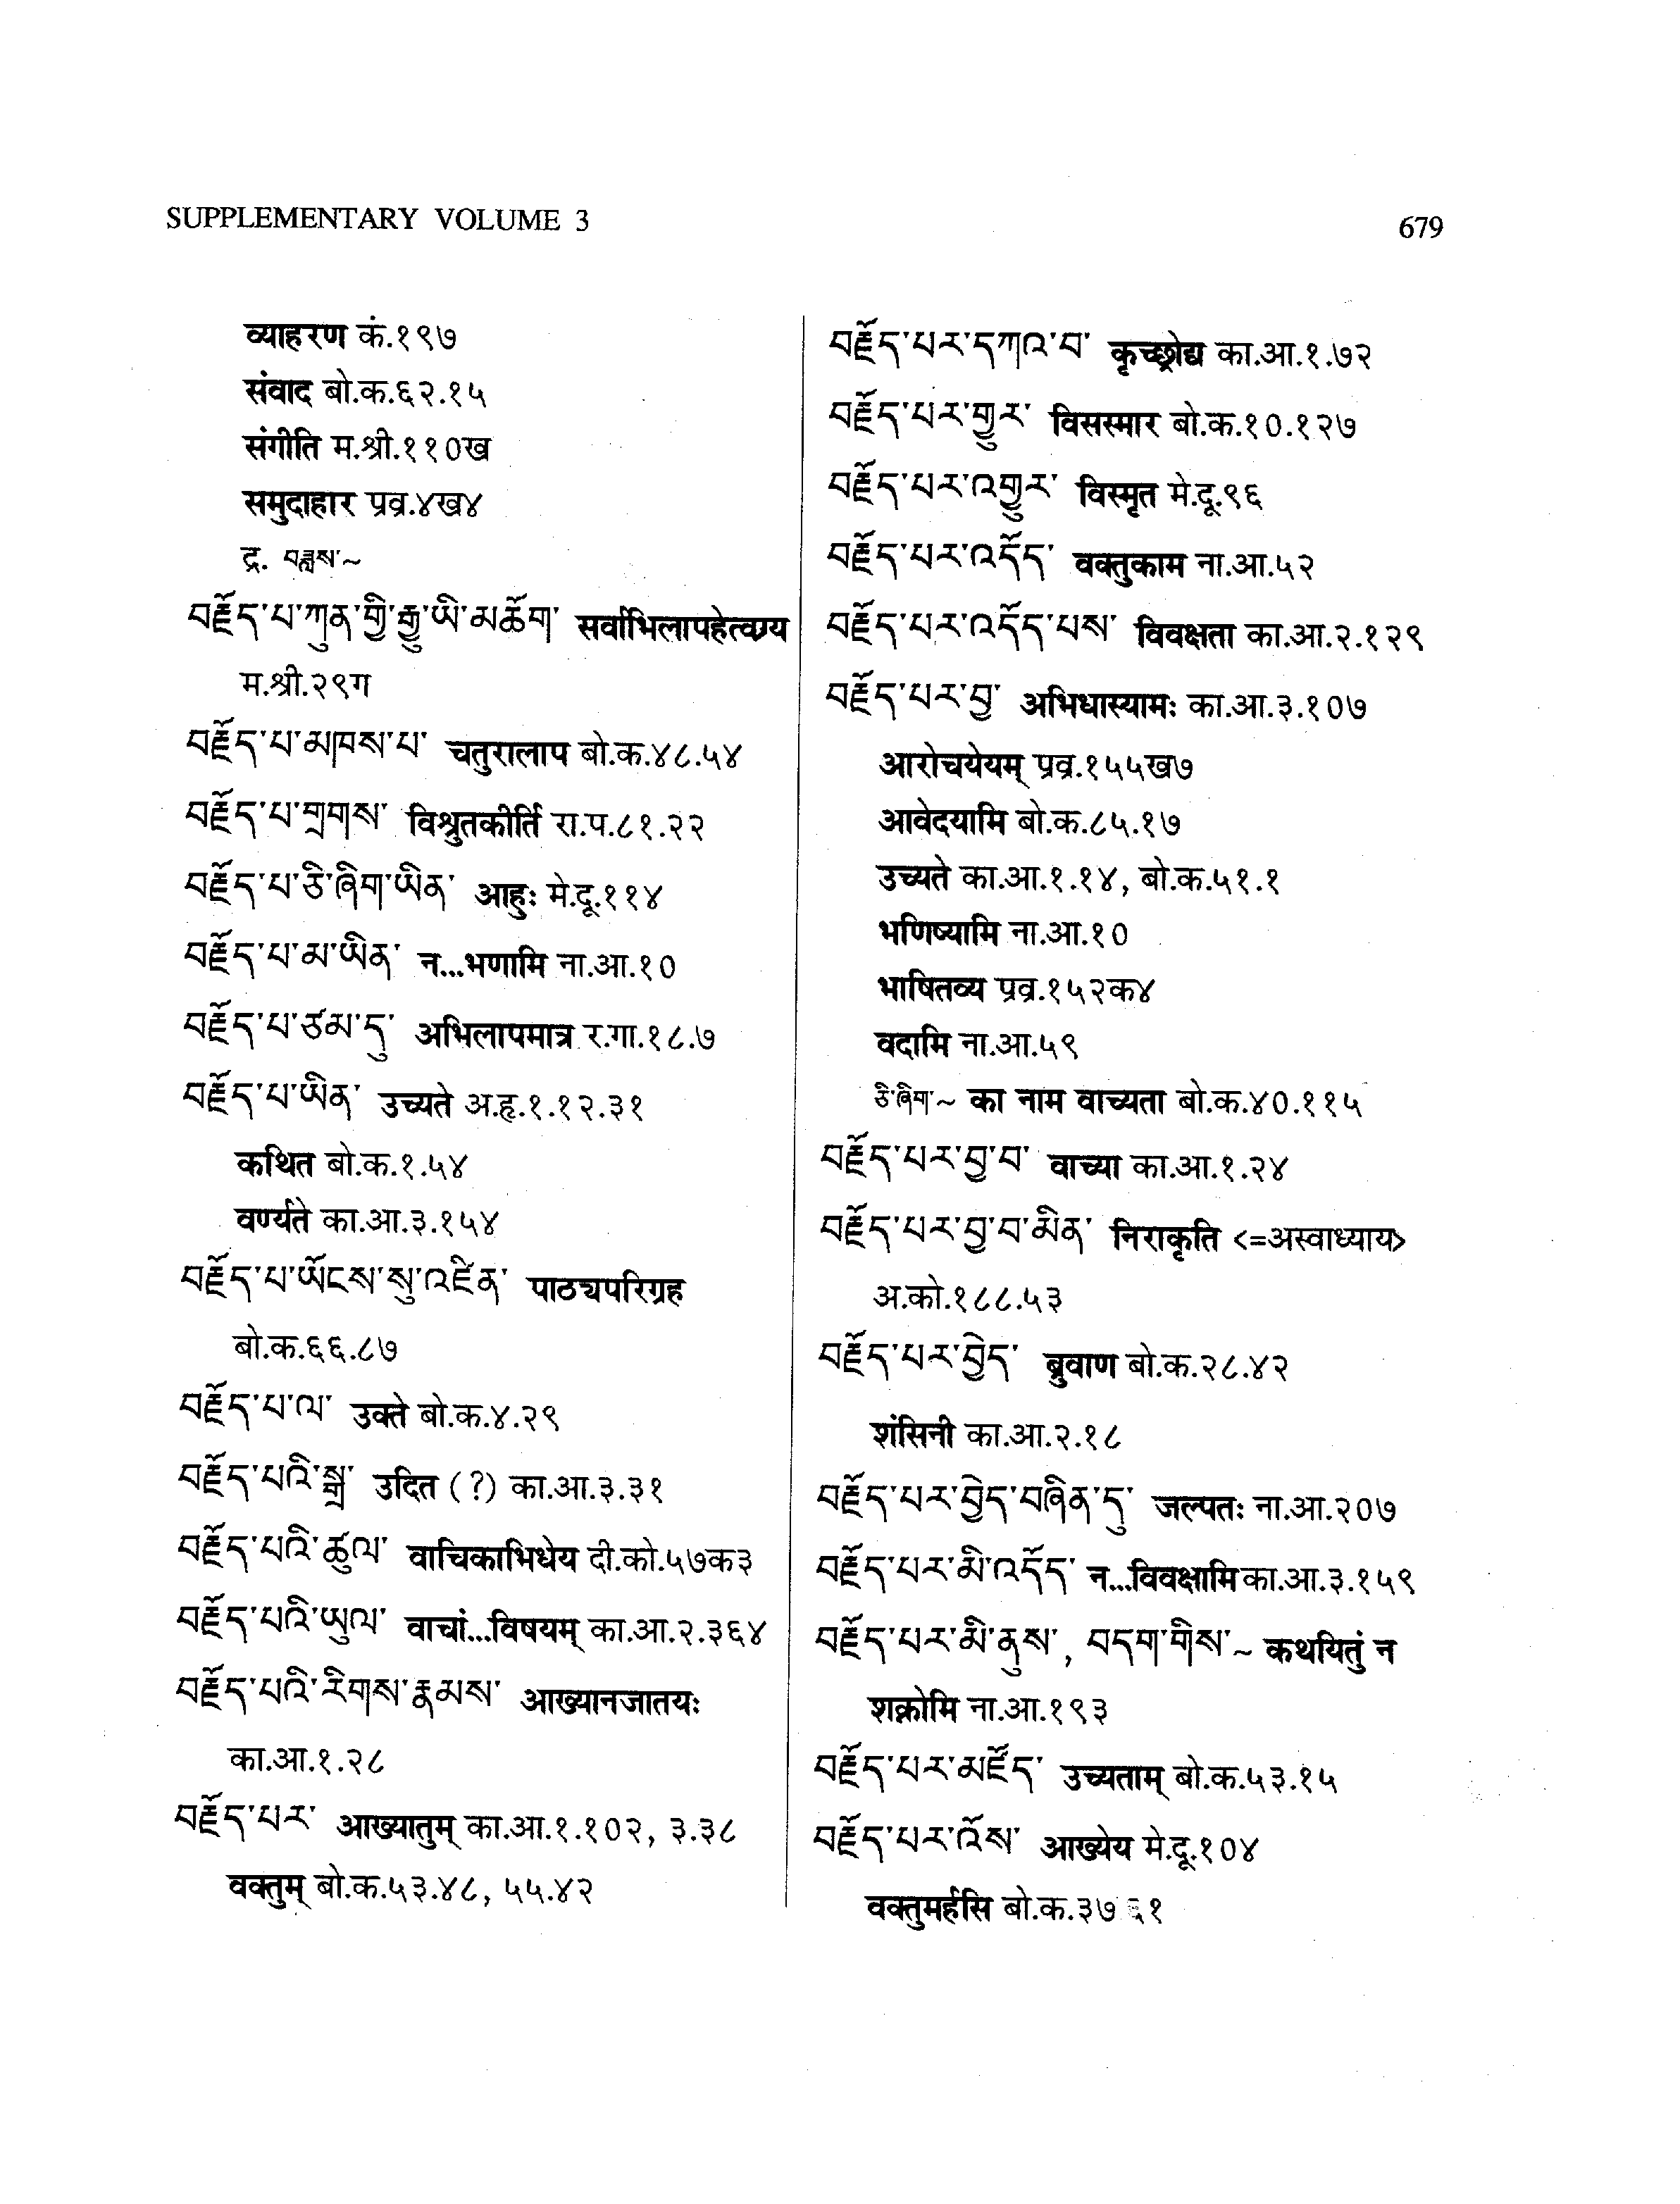 SUPPLEMENTARY VOLUME 3
679
व्याहरण कं.१९७
संवाद बो.क.६२.१५
संगीति म.श्री.११०ख
समुदाहार प्रव्र.४ख४
द्र. བཟླས་~
བརྗོད་པ་ཀུན་གྱི་རྒྱུ་ཡི་མཆོག་ सर्वाभिलापहेत्वग्र्य
म.श्री.२९ग
བརྗོད་པ་མཁས་པ་ चतुरालाप बो.क.४८.५४
བརྗོད་པ་གྲགས་ विश्रुतकीर्ति रा.प.८१.२२
བརྗོད་པ་ཅི་ཞིག་ཡིན་ आहुः मे.दू.११४
བརྗོད་པ་མ་ཡིན་ न...भणामि ना.आ.१०
བརྗོད་པ་ཙམ་དུ་ अभिलापमात्र र.गा.१८.७
བརྗོད་པ་ཡིན་ उच्यते अ.हृ.१.१२.३१
कथित बो.क.१.५४
वर्ण्यते का.आ.३.१५४
བརྗོད་པ་ཡོངས་སུ་འཛིན་ पाठ्यपरिग्रह
बो.क.६६.८७
བརྗོད་པ་ལ་ उक्ते बो.क.४.२९
བརྗོད་པའི་སྒྲ་ उदित (?) का.आ.३.३१
བརྗོད་པའི་ཚུལ་ वाचिकाभिधेय दी.को.५७क३
བརྗོད་པའི་ཡུལ་ वाचां...विषयम् का.आ.२.३६४
བརྗོད་པའི་རིགས་རྣམས་ आख्यानजातयः
का.आ.१.२८
བརྗོད་པར་ आख्यातुम् का.आ.१.१०२, ३.३८
वक्तुम् बो.क.५३.४८, ५५.४२
བརྗོད་པར་དཀའ་བ་ कृच्छ्रोद्य का.आ.१.७२
བརྗོད་པར་གྱུར་ विसस्मार बो.क.१०.१२७
བརྗོད་པར་འགྱུར་ विस्मृत मे.दू.९६
བརྗོད་པར་འདོད་ वक्तुकाम ना.आ.५२
བརྗོད་པར་འདོད་པས་ विवक्षता का.आ.२.१२९
བརྗོད་པར་བྱ་ अभिधास्यामः का.आ.३.१०७
आरोचयेयम् प्रव्र.१५५ख७
आवेदयामि बो.क.८५.१७
उच्यते का.आ.१.१४, बो.क.५१.१
भणिष्यामि ना.आ.१०
भाषितव्य प्रव्र.१५२क४
वदामि ना.आ.५९
ཅི་ཞིག་~ का नाम वाच्यता बो.क.४०.११५
བརྗོད་པར་བྱ་བ་ वाच्या का.आ.१.२४
བརྗོད་པར་བྱ་བ་མིན་ निराकृति <=अस्वाध्याय>
अ.को.१८८.५३
བརྗོད་པར་བྱེད་ ब्रुवाण बो.क.२८.४२
शंसिनी का.आ.२.१८
བརྗོད་པར་བྱེད་བཞིན་དུ་ जल्पतः ना.आ.२०७
བརྗོད་པར་མི་འདོད་ न...विवक्षामि का.आ.३.१५९
བརྗོད་པར་མི་ནུས་, བདག་གིས་~ कथयितुं न
शक्नोमि ना.आ.१९३
བརྗོད་པར་མཛོད་ उच्यताम् बो.क.५३.१५
བརྗོད་པར་འོས་ आख्येय मे.दू.१०४
वक्तुमर्हसि बो.क.३७ ६१